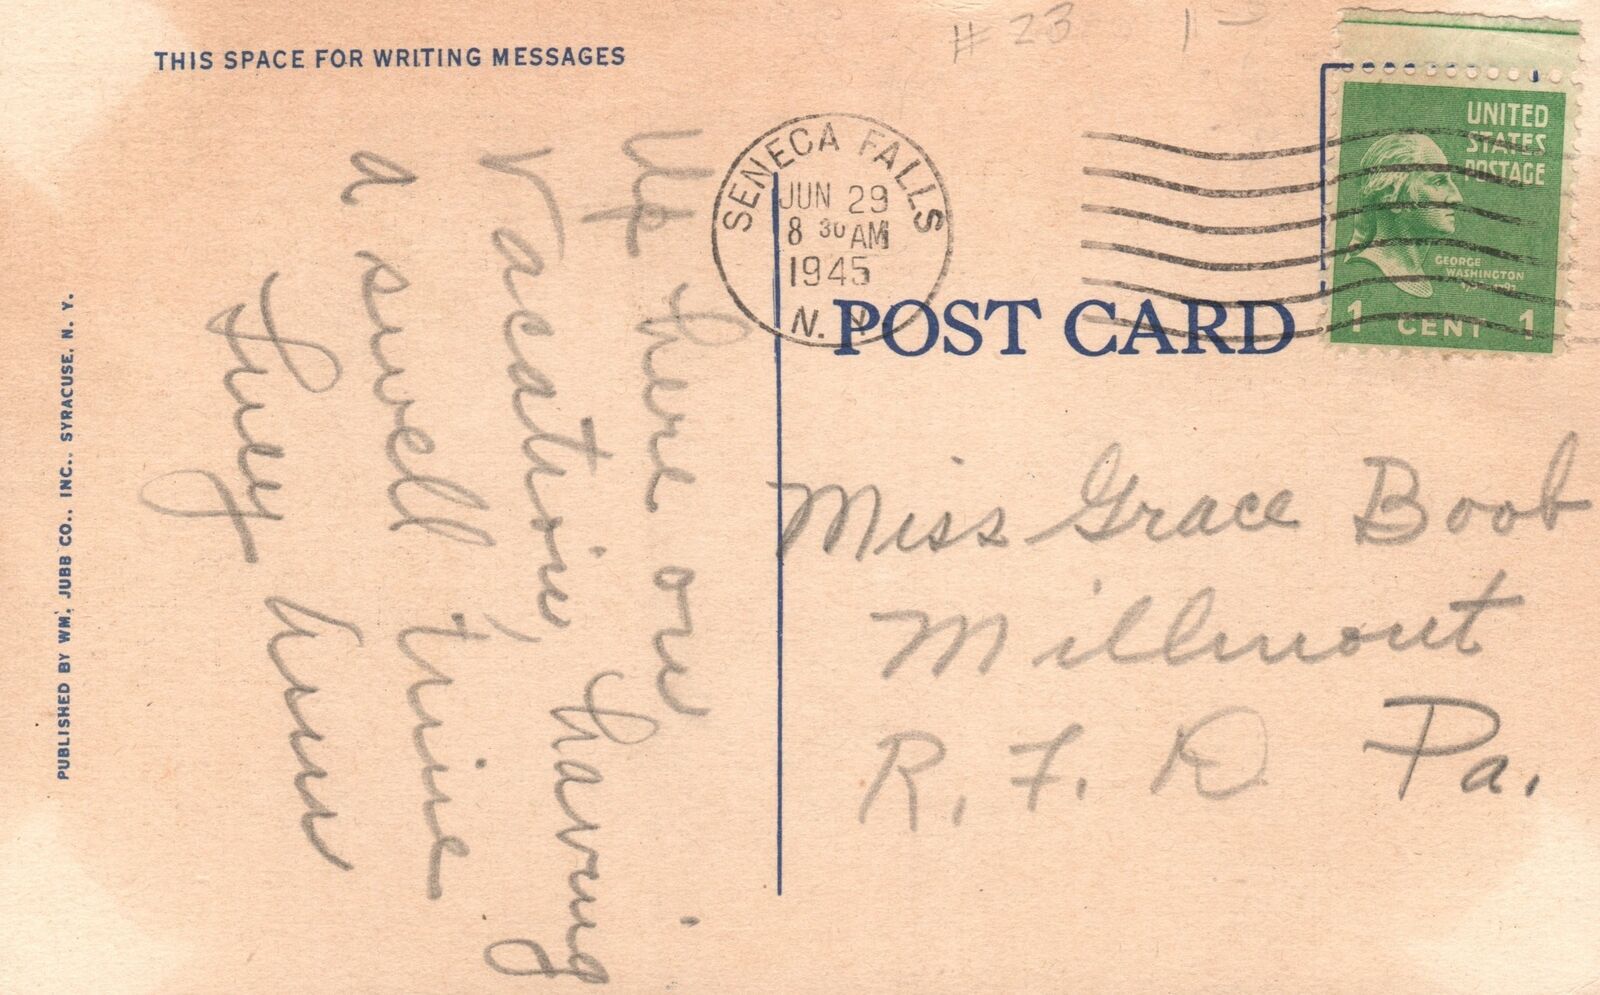 THIS SPACE FOR WRITING MESSAGES
# 23
1-
Up here on
Vacation, having
a swell time
Lucy Ann
SENECA FALLS
JUN 29
8 30 AM
1945
N. Y.
UNITED
STATES
POSTAGE
GEORGE
WASHINGTON
1 CENT 1
POST CARD
Miss Grace Boob
Millmont
R. F. D. Pa.
PUBLISHED BY WM. JUBB CO., INC., SYRACUSE, N. Y.